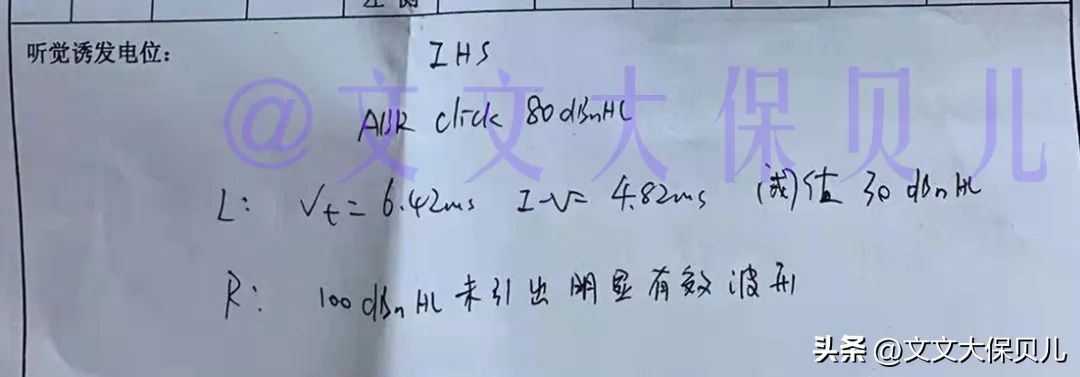 左侧
听觉诱发电位：
IHS
@文文大保贝儿
ABR click 80dBnHL
L: Vt = 6.42ms I-V = 4.82ms (阈)值 30 dBnHL
R: 100dBnHL 未引出明显有效波形
头条 @文文大保贝儿